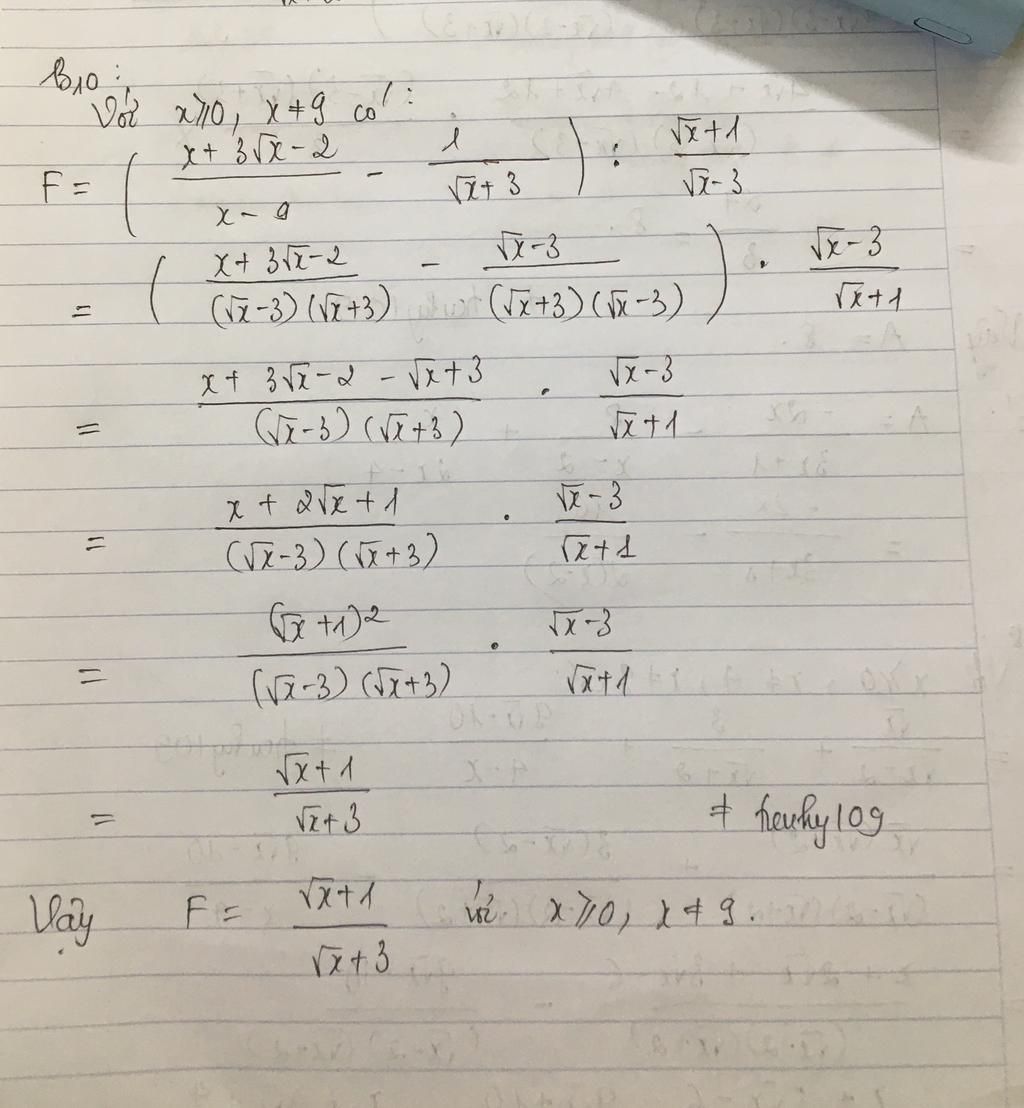 B10:
Với x≥0, x≠9 có:
F = ( (x + 3√x - 2)/(x - 9) - 1/(√x + 3) ) : (√x + 1)/(√x - 3)
= ( (x + 3√x - 2)/((√x - 3)(√x + 3)) - (√x - 3)/((√x + 3)(√x - 3)) ) . (√x - 3)/(√x + 1)
= (x + 3√x - 2 - √x + 3)/((√x - 3)(√x + 3)) . (√x - 3)/(√x + 1)
= (x + 2√x + 1)/((√x - 3)(√x + 3)) . (√x - 3)/(√x + 1)
= (√x + 1)²/((√x - 3)(√x + 3)) . (√x - 3)/(√x + 1)
= (√x + 1)/(√x + 3)
Vậy F = (√x + 1)/(√x + 3) với x≥0, x≠9.